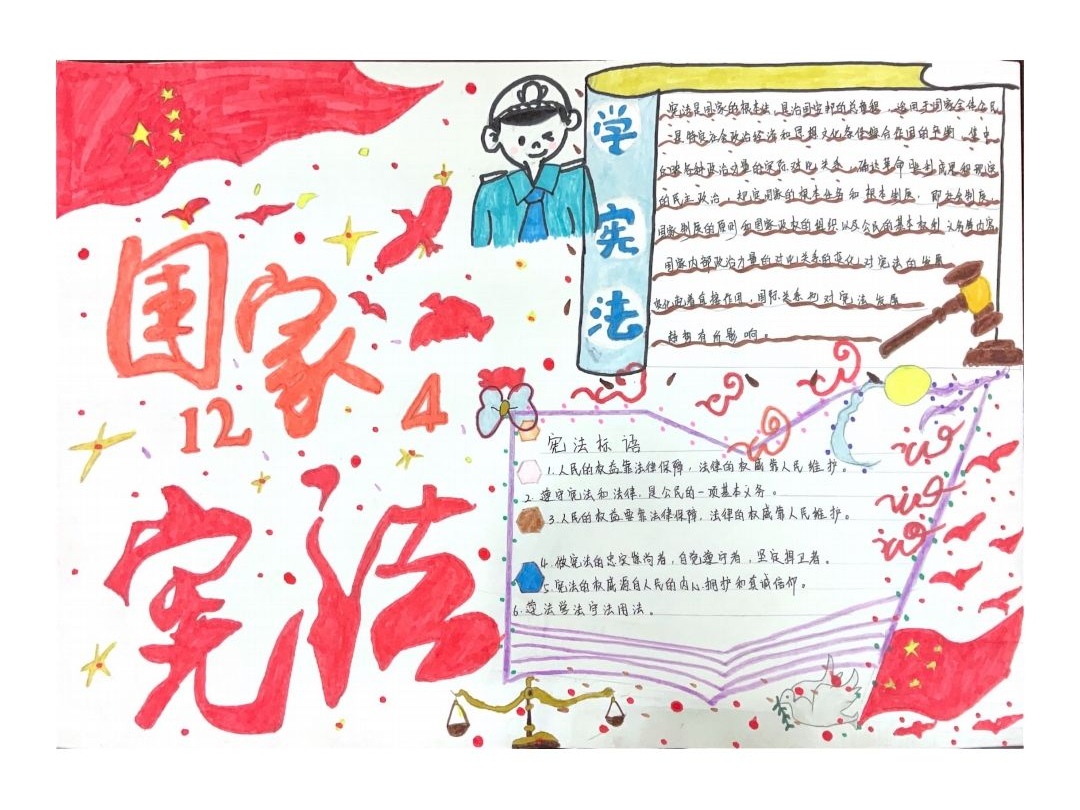 国家
12 4
宪法
学宪法
宪法是国家的根本法,是治国安邦的总章程,适用于国家全体公民
是特定社会政治经济和思想文化条件综合作用的 集中
各种政治力量的实际对比关系,确认革命胜利成果和现实
的民主政治,规定国家的根本任务和根本制度,即社会制度、
国家制度的原则和国家政权的组织以及公民的基本权利义务等内容
国家内部政治力量的对比关系的变化对宪法的发展
变化起着直接作用,国际关系也对宪法发展
趋势有所影响。
宪法标语
1.人民的权益靠法律保障,法律的权威靠人民维护。
2.遵守宪法和法律,是公民的一项基本义务。
3.人民的权益要靠法律保障,法律的权威靠人民维护。
4.做宪法的忠实 者,自觉遵守者,坚定捍卫者。
5.宪法的权威源自人民的内心拥护和真诚信仰。
6. 法学法守法用法。